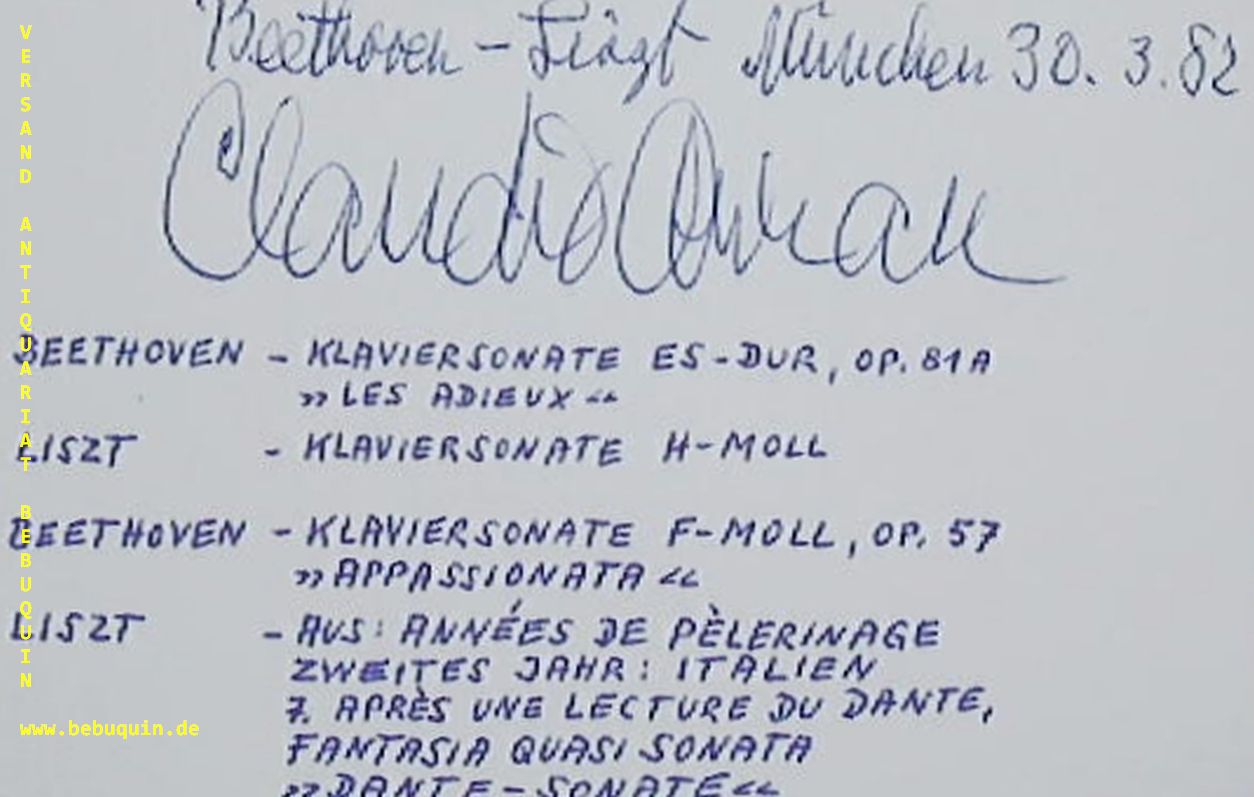 Beethoven - Liszt München 30. 3. 82
Claudio Arrau
BEETHOVEN - KLAVIERSONATE ES-DUR, OP. 81A
»LES ADIEUX«
LISZT - KLAVIERSONATE H-MOLL
BEETHOVEN - KLAVIERSONATE F-MOLL, OP. 57
»APPASSIONATA«
LISZT - AUS: ANNÉES DE PÈLERINAGE
ZWEITES JAHR: ITALIEN
7. APRÈS UNE LECTURE DU DANTE,
FANTASIA QUASI SONATA
»DANTE-SONATE«
VERSAND ANTIQUARIAT BEBUQUIN
www.bebuquin.de